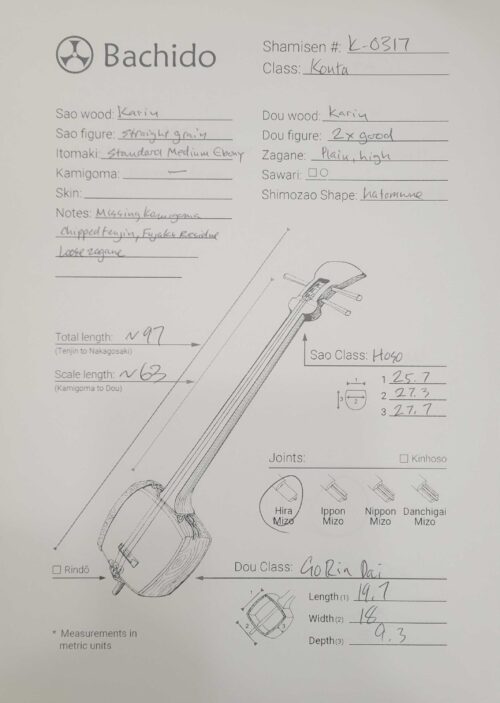 Bachido
Shamisen #: K-0317
Class: Kouta
Sao wood: Karin
Sao figure: straight grain
Itomaki: Standard Medium Ebony
Kamigoma: —
Skin:
Notes: Missing Kamigoma
Chipped tenjin, Fujaku Residue
Loose zagane
Dou wood: Karin
Dou figure: 2x good
Zagane: Plain, high
Sawari:
Shimozao Shape: hatomune
Total length: ~97
(Tenjin to Nakagosaki)
Scale length: ~63
(Kamigoma to Dou)
Sao Class: Hoso
1 25.7
2 27.3
3 27.7
Joints: Kinhoso
Hira Mizo
Ippon Mizo
Nippon Mizo
Danchigai Mizo
Rindō
Dou Class: GoRin Dai
Length (1) 19.7
Width (2) 18
Depth (3) 9.3
* Measurements in
metric units